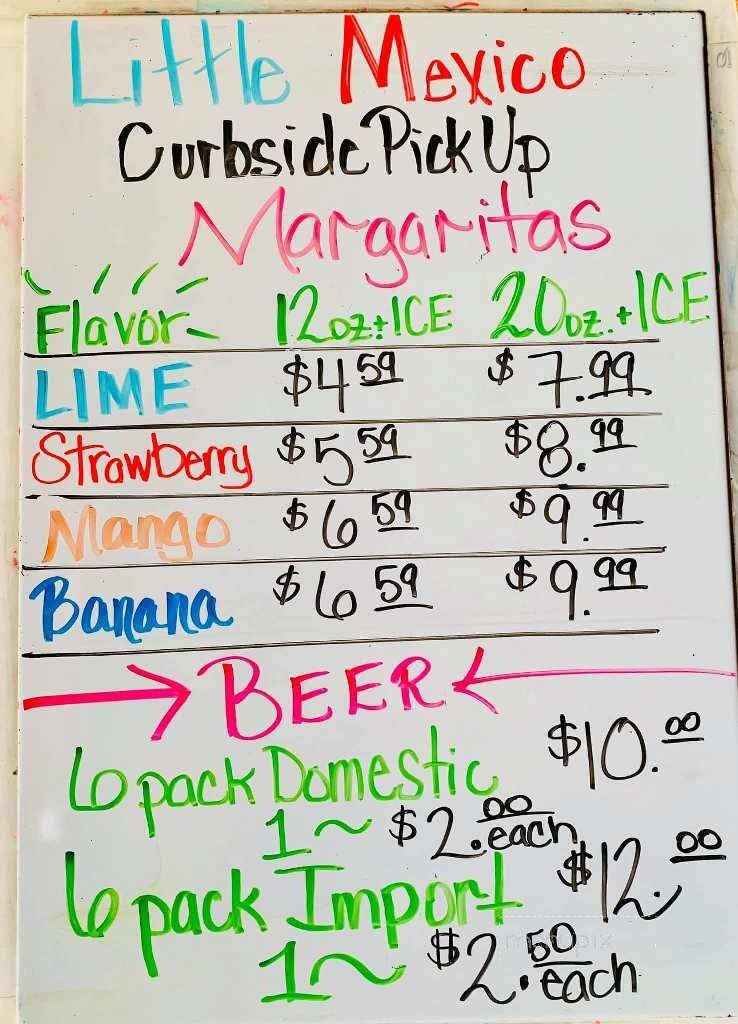 Little Mexico
Curbside Pick Up
Margaritas
Flavor 12oz.+ICE 20oz.+ICE
LIME $4 59 $7.99
Strawberry $5 59 $8.99
Mango $6 59 $9.99
Banana $6 59 $9.99
BEER
6 pack Domestic $10.00
1~ $2.00 each
6 pack Import $12.00
1~ $2.50 each